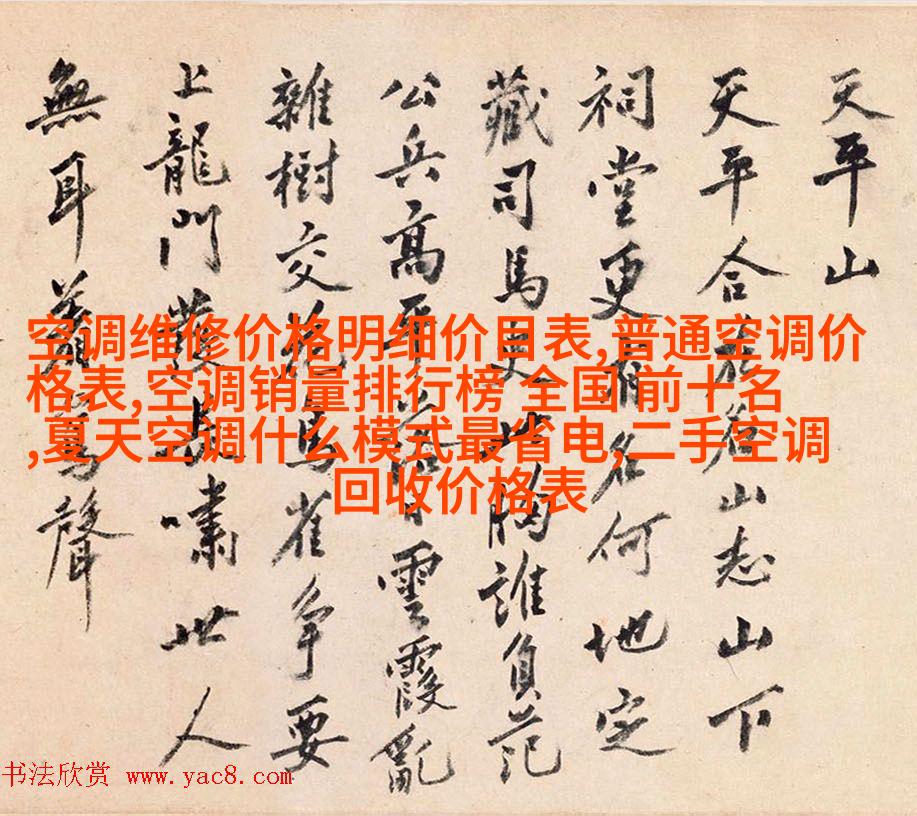 天平山
天平合名山志山下
祠堂更有名何地定
藏司馬史此胸誰負范
公兵高平日雲霞亂
雜樹交花鳥雀争要
上龍門發長嘯世人
無耳聲
空调维修价格明细价目表,普通空调价
格表,空调销量排行榜 全国 前十名
,夏天空调什么模式最省电,二手空调
回收价格表
书法欣赏 www.yac8.com